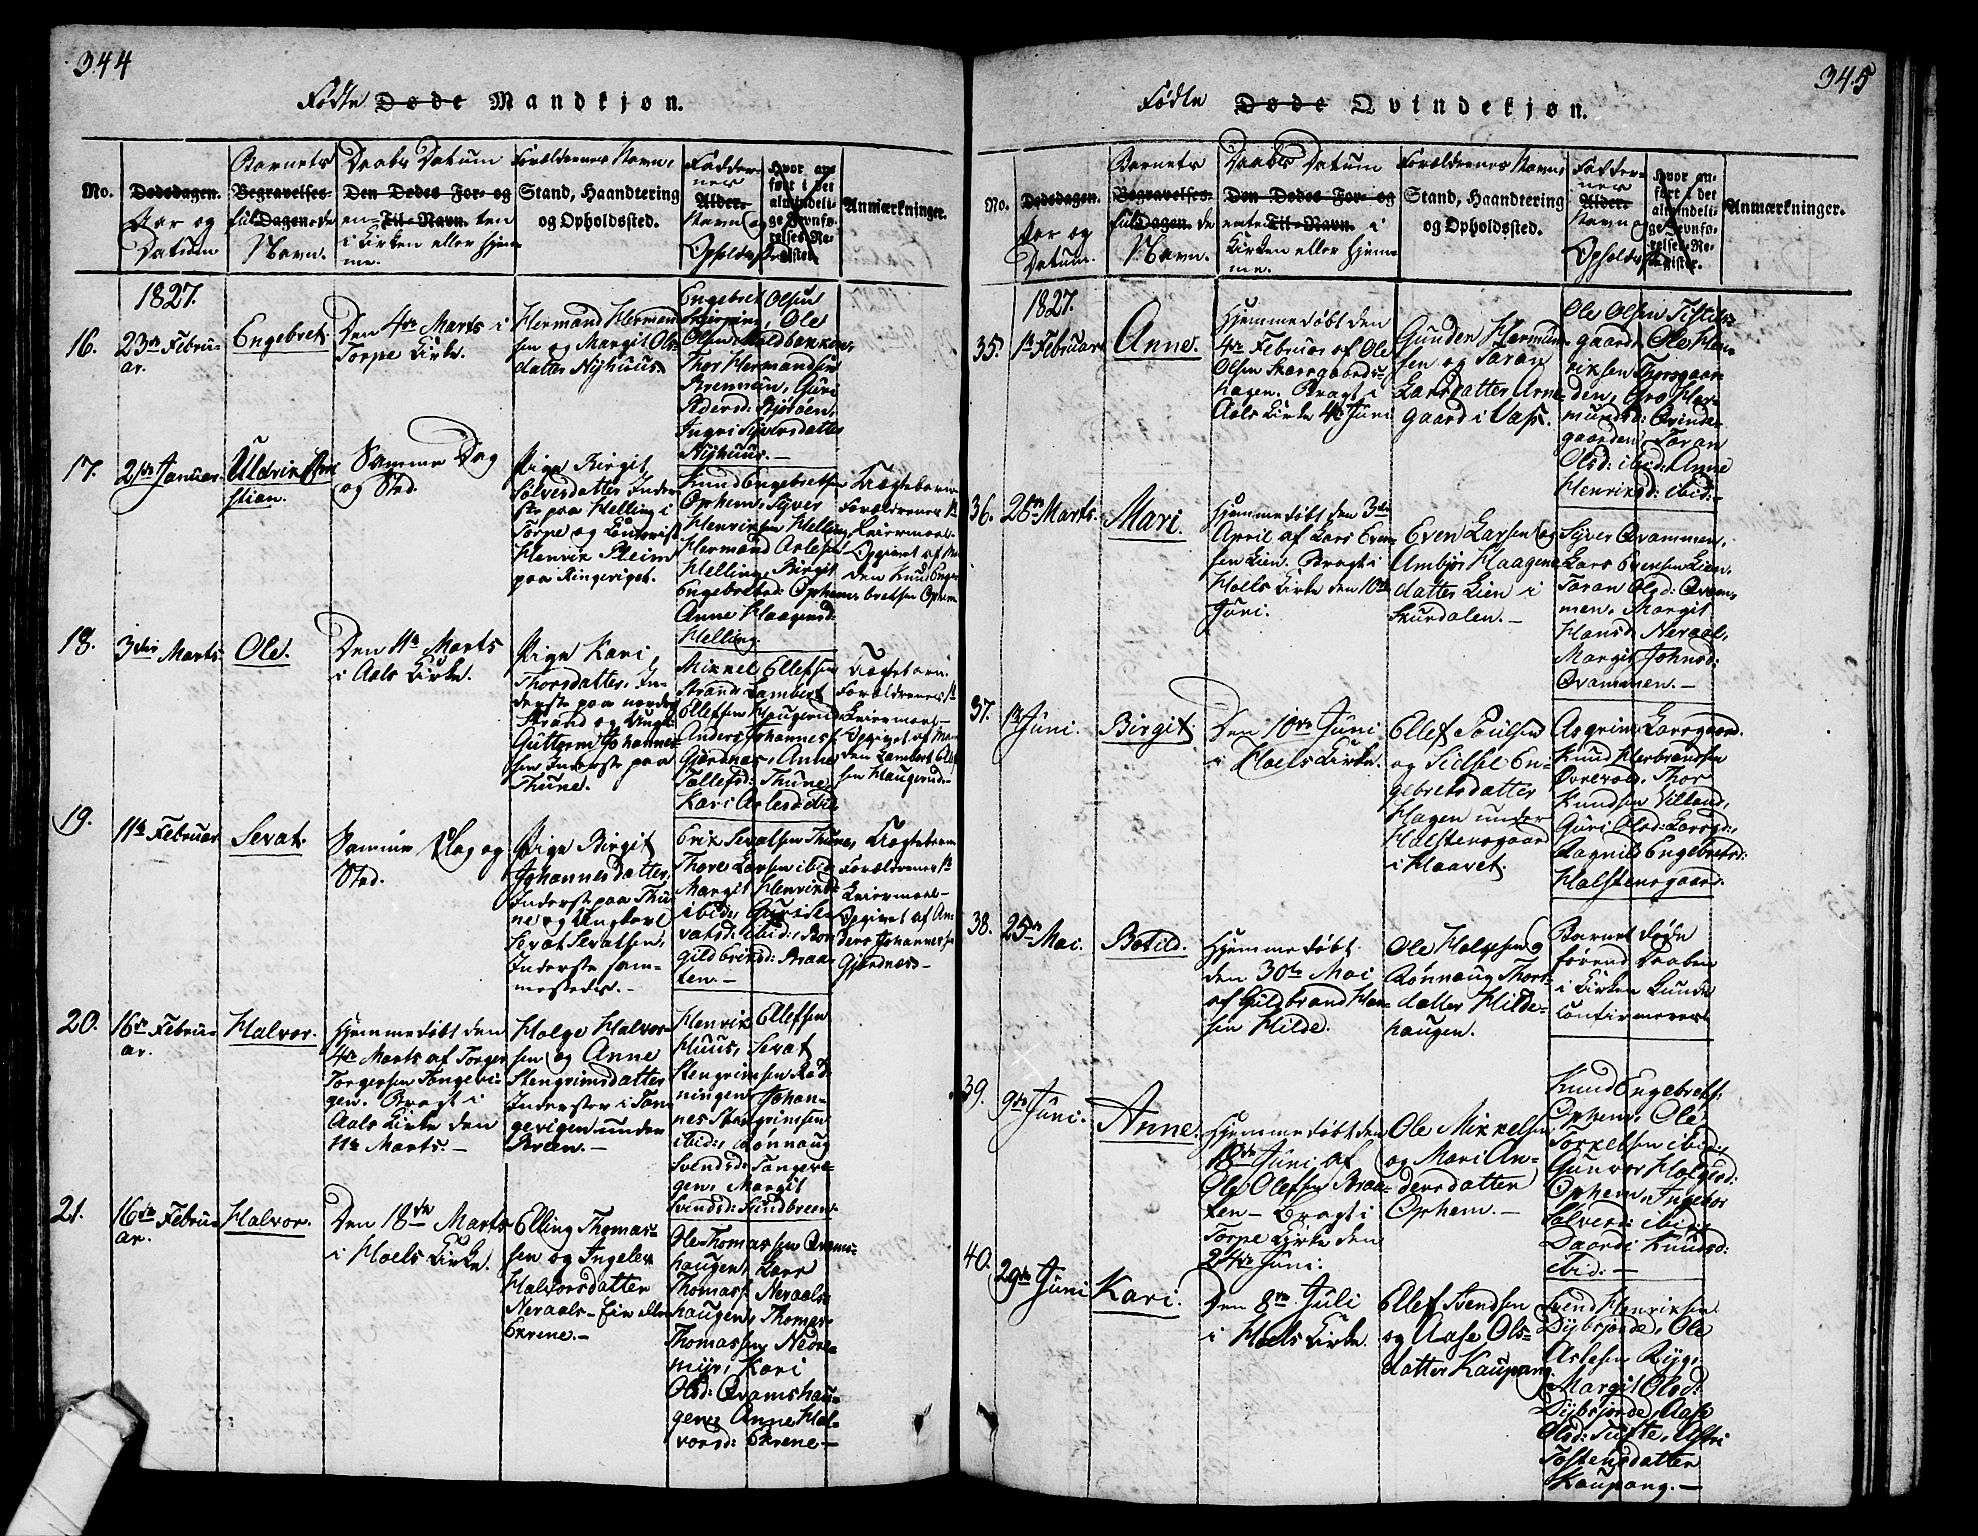 344
Fødte Døde Mandkjøn.
No.
Dødsdagen.
Aar og
Datum
Barnets
Begravelses-
fulDagen.de
Navn.
Daabs Datum
Den Dødes For- og
en-Til-Navn. ten
i Kirken eller Hjem-
me.
Forældrenes Navn,
Stand, Haandtering
og Opholdssted.
Fadder-
nes
Alder.
Navn og
Opholds
Hvor an-
ført i det
almindeli-
ge Jevnfø-
relses-Re-
gister.
Anmærkninger.
1827.
16.
23de Febru-
ar.
Engebret.
Den 4de Marts i
Torpe Kirke.
Hermand Hermand
sen og Margit Ols-
datter Nyhuus
Engebret Olsen
Ole
Olsen Moldbakken,
Thor Hermandsen
Brenmun, Guri
Pedersd: Bjøröen,
Ingri Syversdatter
Nyhuus.-
17.
21de Januar
Uldrik Chri
stian.
Samme Dag
og Sted.
Pige Birgit
Sølvesdatter Inder
ste paa Helling i
Torpe og
Henrik Pleim
paa Ringeriget.
Knud Engebretsen
Ophem, Syver
Henriksen Helling
Hermand Aslesen
Helling, Birgit
Engebretsd: Ophem,
Anne Haagensd:
Helling.
Uægtebarn
Forældrenes 1ste
Leiermaal-
Opgivet af Man
den Knud Enge-
bretsen Ophem
18.
3die Marts.
Ole.
Den 11te Marts
i Aals Kirke.
Pige Kari
Thorsdatter, In-
derste paa nordre
Strand og Ungk:
Guttorm Johannes-
sen Inderste paa
Thune.
Mikkel Ellefsen
Strand, Lambert
Ellefsen Haugerud
Anders Johanness:
Gjerdnæs, Anne
Tollefsd: Thune,
Kari Aslesd ibid
Uægtebarn.
Forældrenes 1ste
Leiermaal-
Opgivet af Man
den Lambert Ellef
sen Haugerud-
19.
11te Februar
Sevat.
Samme Dag og
Sted.
Pige Birgit
Johannesdatter,
Inderst paa Thu
ne og Ungkarl
Sevat Sevatsen,
Inderste sam-
mestedes.-
Erik Sevatsen Thune,
Thore Larsen ibid:
Margit Henriksd:
ibid:, Guri Se-
vatsd: ibid:, Ron
gild Eriksd: Braa
ten.-
Uægtebarn
Forældrenes 1ste
Leiermaal-
Opgivet af An-
ders Johannessen
Gjerdnæs-
20.
16de Febru-
ar.
Halvor.
Hjemmedøbt den
4de Marts af Torger
Torgersen Tangevi-
gen. Bragt i
Aals Kirke den
11te Marts.-
Holge Halvor-
sen og Anne
Stengrimsdatter
Inderster i Tan-
gevigen under
Sveen.-
Henrik Ellefsen
Huus, Sevat
Stengrimsen Rød-
ningen, Johan-
nes Stengrimsen
ibid:, Rønnaug
Svendsd: Tangevi-
gen, Margit
Svendsd: Sundbreen.
21.
16de Febru-
ar.
Halvor.
Den 18de Marts
i Hoels Kirke.
Elling Thomas-
sen og Ingelev
Halvorsdatter
Neraals-Eie eller
Ekrene.-
Ole Thomassen Qvams-
haugen, Lars
Thomass: Neraals-
haugen, Thomas
Thomassen, Nedre-
myr, Kari
Olsd: Qvamshau-
gen, Anne Hal-
vorsd: Ekrene-
345
Fødte Døde Qvindekjøn.
No.
Dødsdagen.
Aar og
Datum.
Barnets
Begravelses-
fulDagen. de
Navn.
Daabs Datum
Den Dødes For- og
enten Til-Navn. i
Kirken eller Hjem-
me.
Forældrenes Navn,
Stand, Haandtering
og Opholdssted.
Fadder-
nes
Alder.
Navn og
Opholds
Hvor an-
ført i det
almindeli-
ge Jevnfø-
relses-Re-
gister.
Anmærkninger.
1827.
35.
1te Februar
Anne.
Hjemmedøbt den
4de Februar af Ole
Olsen Skarsgaards-
hagen. Bragt i
Aals Kirke 4de Juni
Gunder Hermun-
sen og Taran
Larsdatter Arne-
gaard i Vats.
Ole Olsen Tistels-
gaard, Ole Hen-
riksen Thorsgaar-
den, Gro Her-
mundsd: Qvinde-
gaarden, Taran
Olsd: ibid: Anne
Henriksd: ibid:-
36.
28de Marts.
Mari.
Hjemmedøbt den 3die
April af Lars Even-
sen Lien. Bragt i
Hoels Kirke den 10de
Juni.
Even Larsen og
Ambjør Haagens-
datter Lien i
Skurdalen.-
Syver Qvammen,
Lars Evensen Lien,
Taran Olsd: Qvam-
men, Margit
Hansd. Neraal,
Margit Johnsd:
Qvammen.-
37.
1te Juni.
Birgit
Den 10de Juni
i Hoels Kirke.
Ellef Poulsen
og Sidsel En-
gebretsdatter
Hagen under
Halstensgaard
i Haavet.
Asgrim Larsgaard.
Knud Herbrandsen
Øvrevold, Thor
Knudsen Villand,
Guri Olsd: Larsgd:,
Ragnild Engebretsd:
Halstensgaard.
38.
25de Mai.
Botild.
Hjemmedøbt
den 30te Mai
af Guldbrand Han-
sen Hilde.
Ole Halvorsen og
Rønnaug Thors-
datter Hilde-
haugen.
Barnet døde
førend Daaben
i Kirken kunde
confirmeres
39.
9de Juni.
Anne.
Hjemmedøbt den
18de Juni af
Ole Olefsen Braa-
ten - Bragt i
Torpe Kirke den
24de Juni.
Ole Mikkelsen
og Mari An-
dersdatter
Ophem.-
Knud Engebrets:
Ophem, Ole
Torkelsen ibid:,
Gunvor Holgesd:
Ophem, Ingebor
Halversd: ibid:,
Daardi Knudsd:
ibid:-
40.
29de Juni
Kari.
Den 8de Juli
i Hoels Kirke.
Ellef Svendsen
og Aase Ols-
datter Kaupang
Svend Henriksen
Dybsjorde, Ole
Aslesen Ryg,
Margit Olsd:
Dybsjorde, Aase
Olsd: Tufte, Astri
Tostensdatter
Kaupang.-